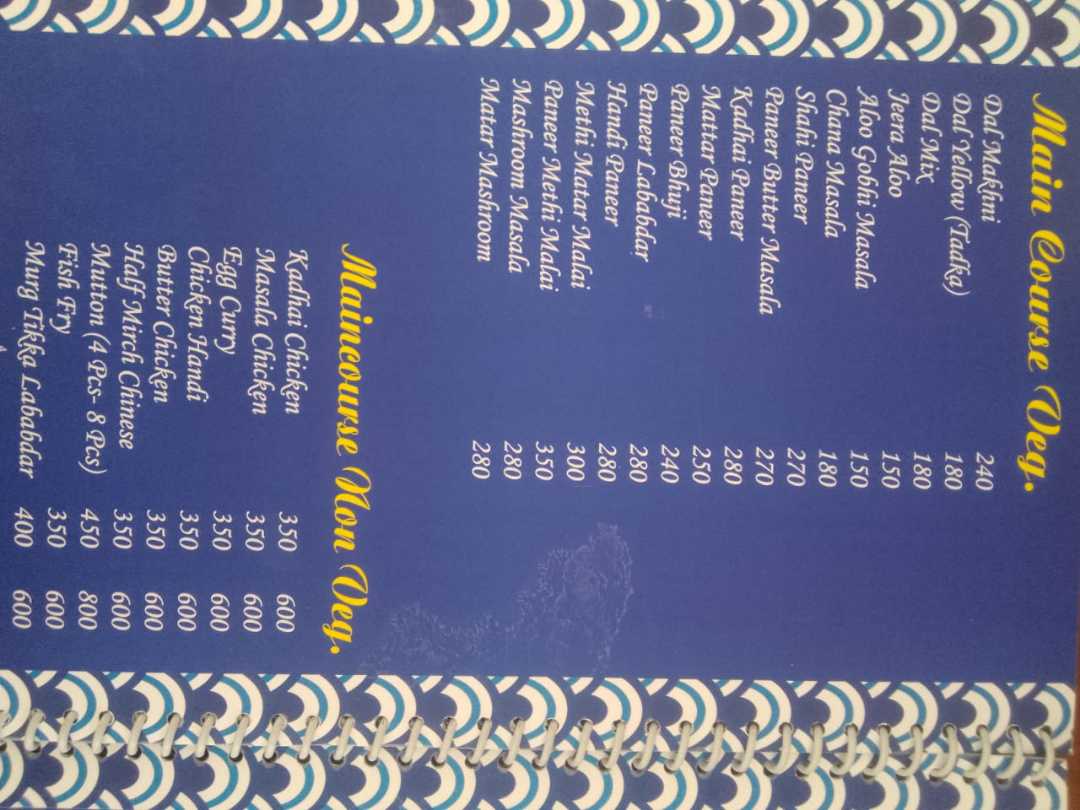 Main Course Veg.
Dal Makhni 240
Dal Yellow (Tadka) 180
Dal Mix 180
Jeera Aloo 150
Aloo Gobhi Masala 150
Chana Masala 180
Shahi Paneer 270
Paneer Butter Masala 270
Kadhai Paneer 280
Mattar Paneer 250
Paneer Bhuji 240
Paneer Lababdar 280
Handi Paneer 280
Methi Matar Malai 300
Paneer Methi Malai 350
Mashroom Masala 280
Matar Mashroom 280
Maincourse Non Veg.
Kadhai Chicken 350 600
Masala Chicken 350 600
Egg Curry 350 600
Chicken Handi 350 600
Butter Chicken 350 600
Half Mirch Chinese 350 600
Mutton (4 Pcs- 8 Pcs) 450 800
Fish Fry 350 600
Murg Tikka Lababdar 400 600